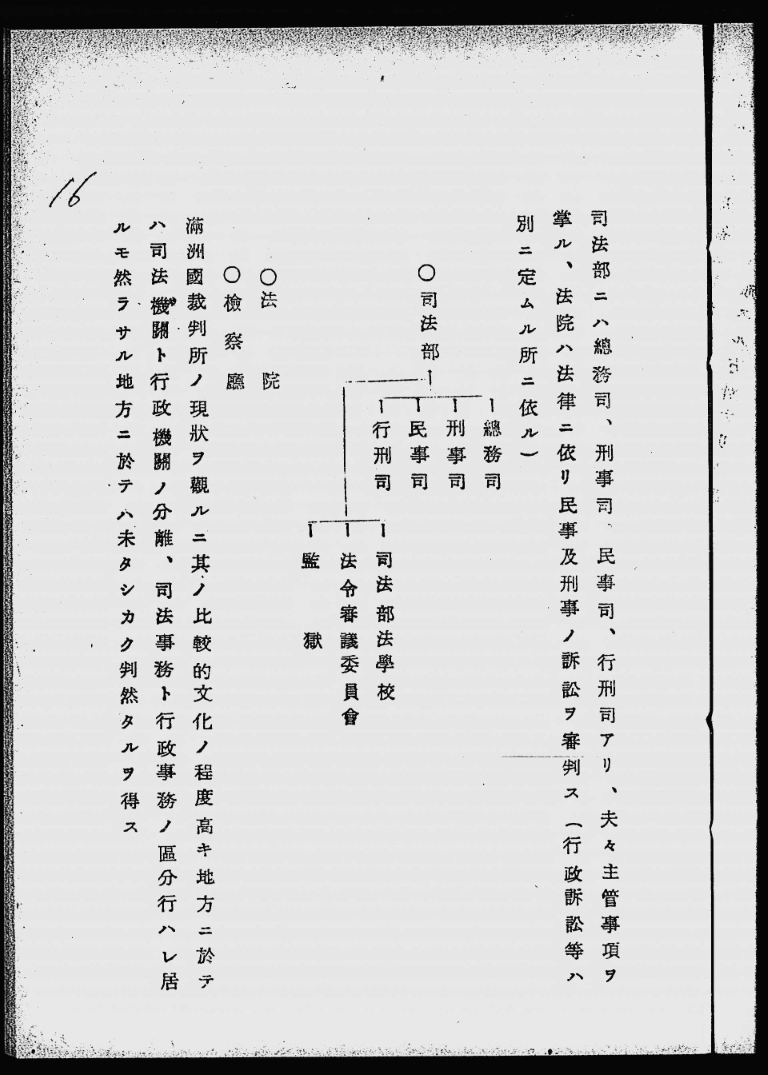 司法部ニハ總務司、刑事司、民事司、行刑司アリ、夫々主管事項ヲ
掌ル、法院ハ法律ニ依リ民事及刑事ノ訴訟ヲ審判ス（行政訴訟等ハ
別ニ定ムル所ニ依ル）
〇司法部
總務司
刑事司
民事司
行刑司
司法部法學校
法令審議委員會
監獄
〇法院
〇檢察廳
滿洲國裁判所ノ現狀ヲ觀ルニ其ノ比較的文化ノ程度高キ地方ニ於テ
ハ司法機關ト行政機關ノ分離、司法事務ト行政事務ノ區分行ハレ居
ルモ然ラサル地方ニ於テハ未タシカク判然タルヲ得ス
16